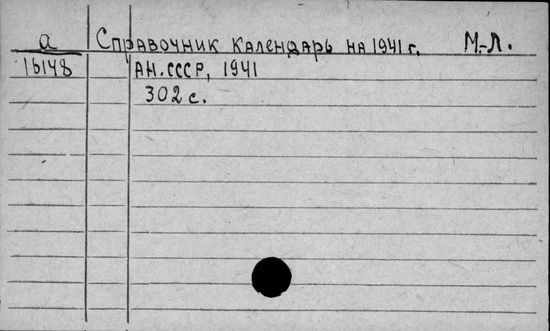 а Справочник календарь на 1941 г. М.-Л.
16148 АН.СССР, 1941
302 с.